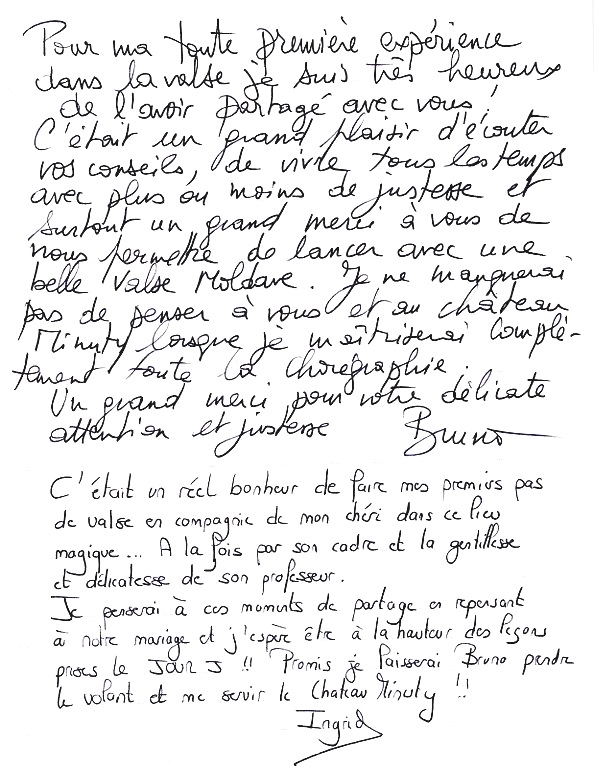 Pour ma toute première expérience
dans la valse je suis très heureux
de l'avoir partagé avec vous !
C'était un grand plaisir d'écouter
vos conseils, de vivre tous les temps
avec plus ou moins de justesse et
surtout un grand merci à vous de
nous permettre de lancer avec une
belle Valse Moldave. Je ne manquerai
pas de penser à vous et au château
Minuty lorsque je maîtriserai complé-
tement toute la chorégraphie.
Un grand merci pour votre délicate
attention et justesse Bruno
C'était un réel bonheur de faire mes premiers pas
de valse en compagnie de mon chéri dans ce lieu
magique... A la fois par son cadre et la gentillesse
et délicatesse de son professeur.
Je penserai à ces moments de partage en repensant
à notre mariage et j'espère être à la hauteur des leçons
prises le JOUR J !! Promis je laisserai Bruno prendre
le volant et me servir le Chateau Minuty !!
Ingrid